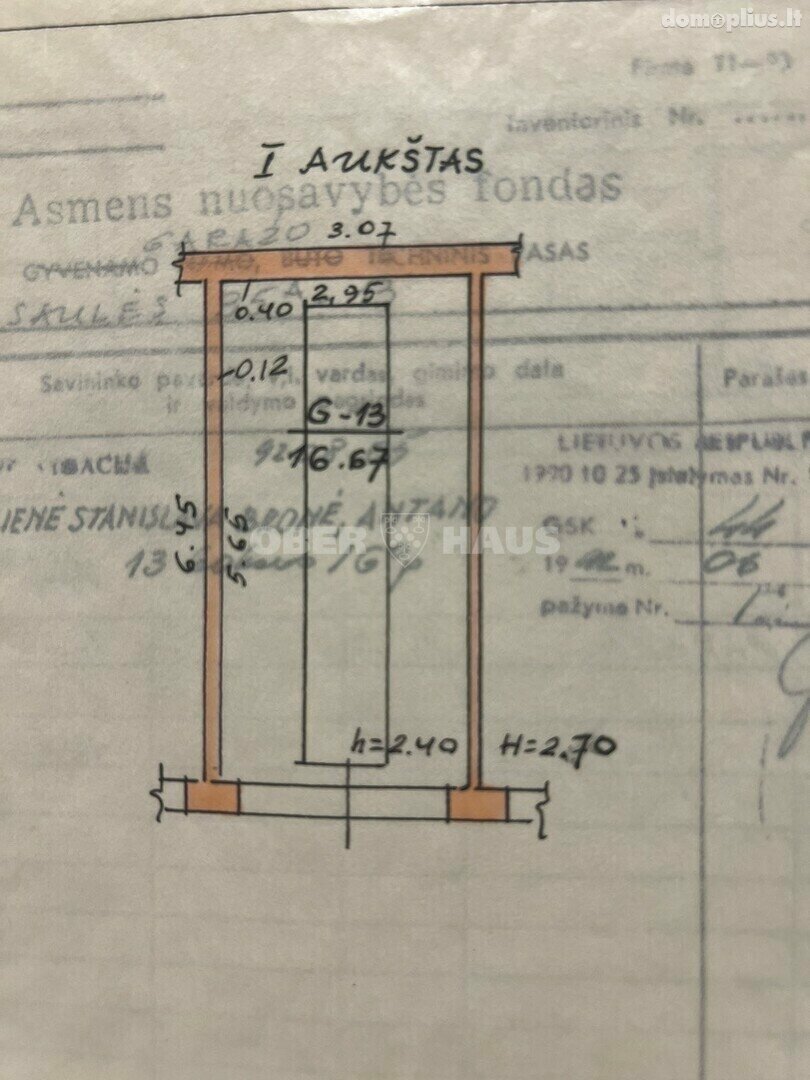 domoplius.lt
Forma TI-
Inventorinis Nr. ......
I AUKŠTAS
Asmens nuosavybės fondas
3.07
GARAŽO
GYVENAMO NAMO, BUTO TECHNINIS PASAS
SAULĖS
2,95
0.40
0.12
Savininko vardas, gimimo data
Parašas
ir valdymo pagrindas
G-13
16.67
LIETUVOS RESPUBL
1990 10 25 įstatymas Nr.
IENĖ STANISLAVA BRONĖ, ANTANO
6.45
5.65
OBER HAUS
GSK 44
19 m. 06
pažyma Nr.
h=2.40
H=2.70